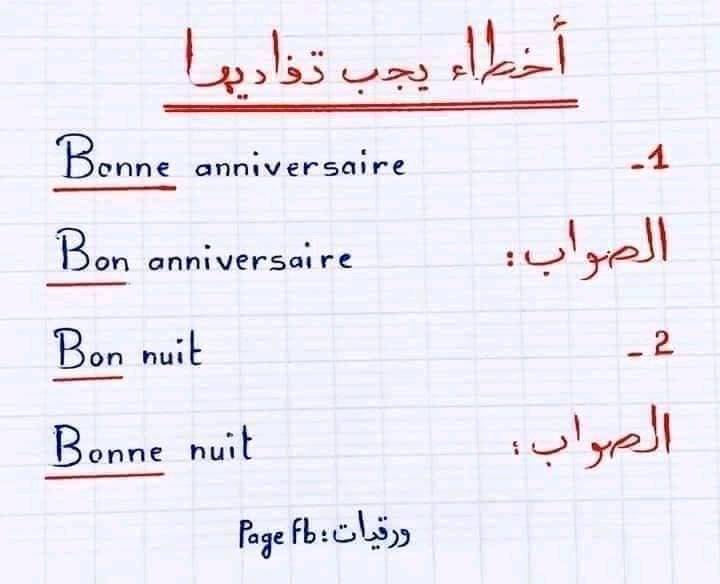 أخطاء يجب تفاديها
1- Bonne anniversaire
الصواب: Bon anniversaire
2- Bon nuit
الصواب: Bonne nuit
Page Fb: ورقيات